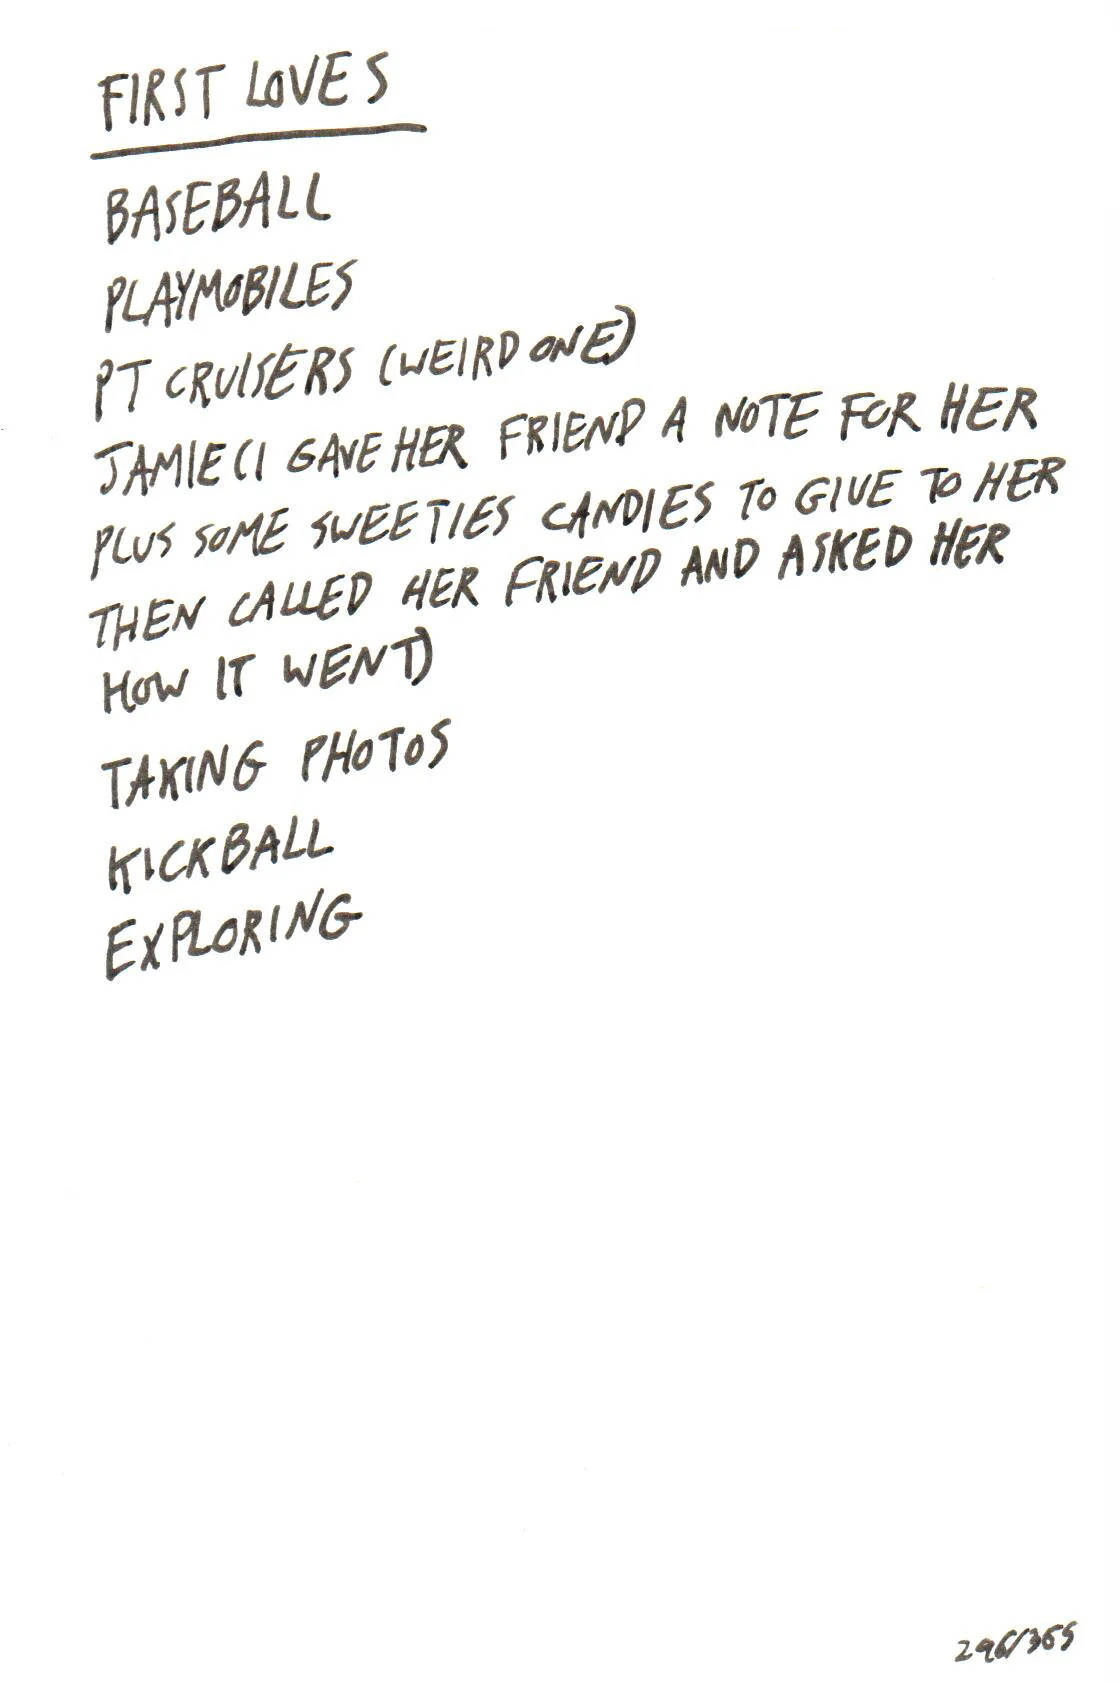 FIRST LOVES
BASEBALL
PLAYMOBILES
PT CRUISERS (WEIRD ONE)
JAMIE (I GAVE HER FRIEND A NOTE FOR HER
PLUS SOME SWEETIES CANDIES TO GIVE TO HER
THEN CALLED HER FRIEND AND ASKED HER
HOW IT WENT)
TAKING PHOTOS
KICKBALL
EXPLORING
296/365